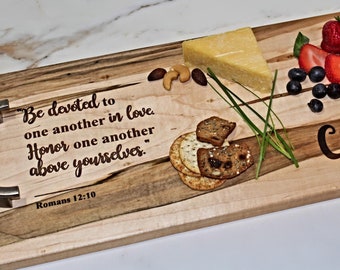 "Be devoted to
one another in love.
Honor one another
above yourselves."
Romans 12:10
C